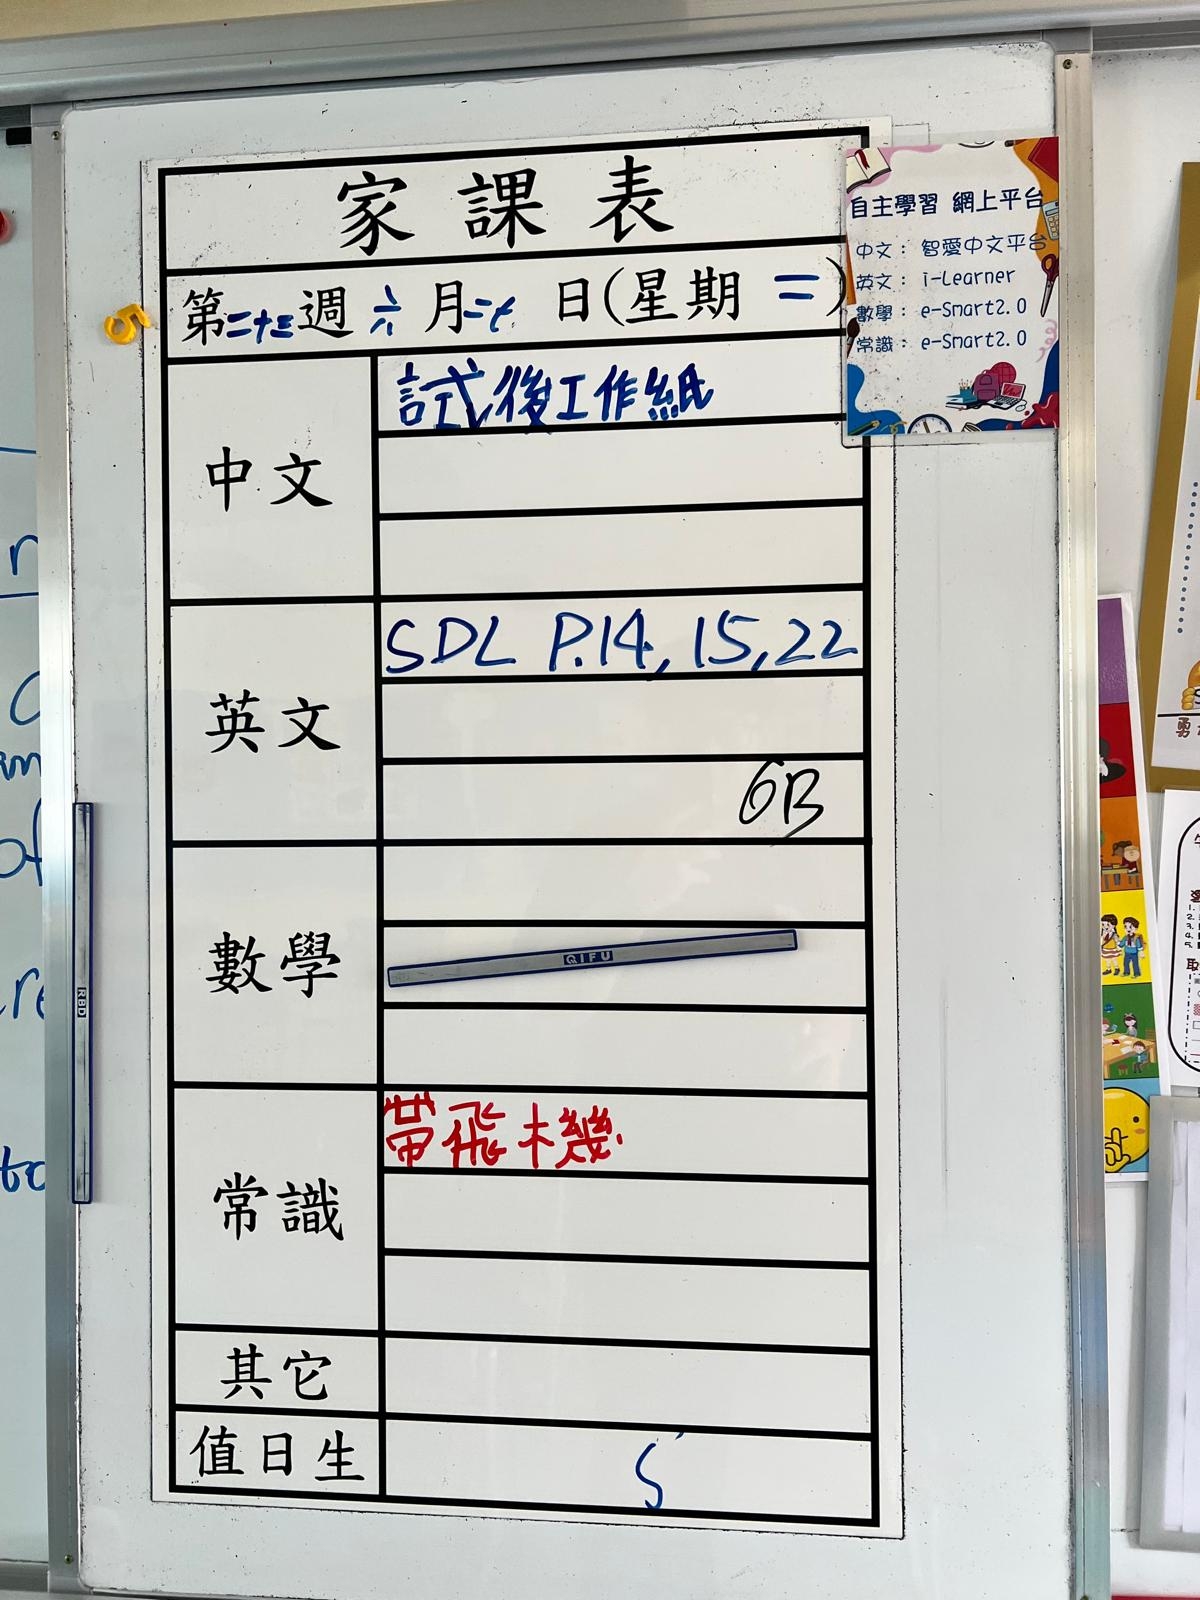 家課表
第二十三週 六月二七日(星期二)
中文
試後工作紙
英文
SDL P.14, 15, 22
6B
數學
QIFU
常識
帶飛機
其它
值日生
5
自主學習 網上平台
中文： 智愛中文平台
英文： i-Learner
數學： e-Smart2.0
常識： e-Smart2.0
RBD
of
to